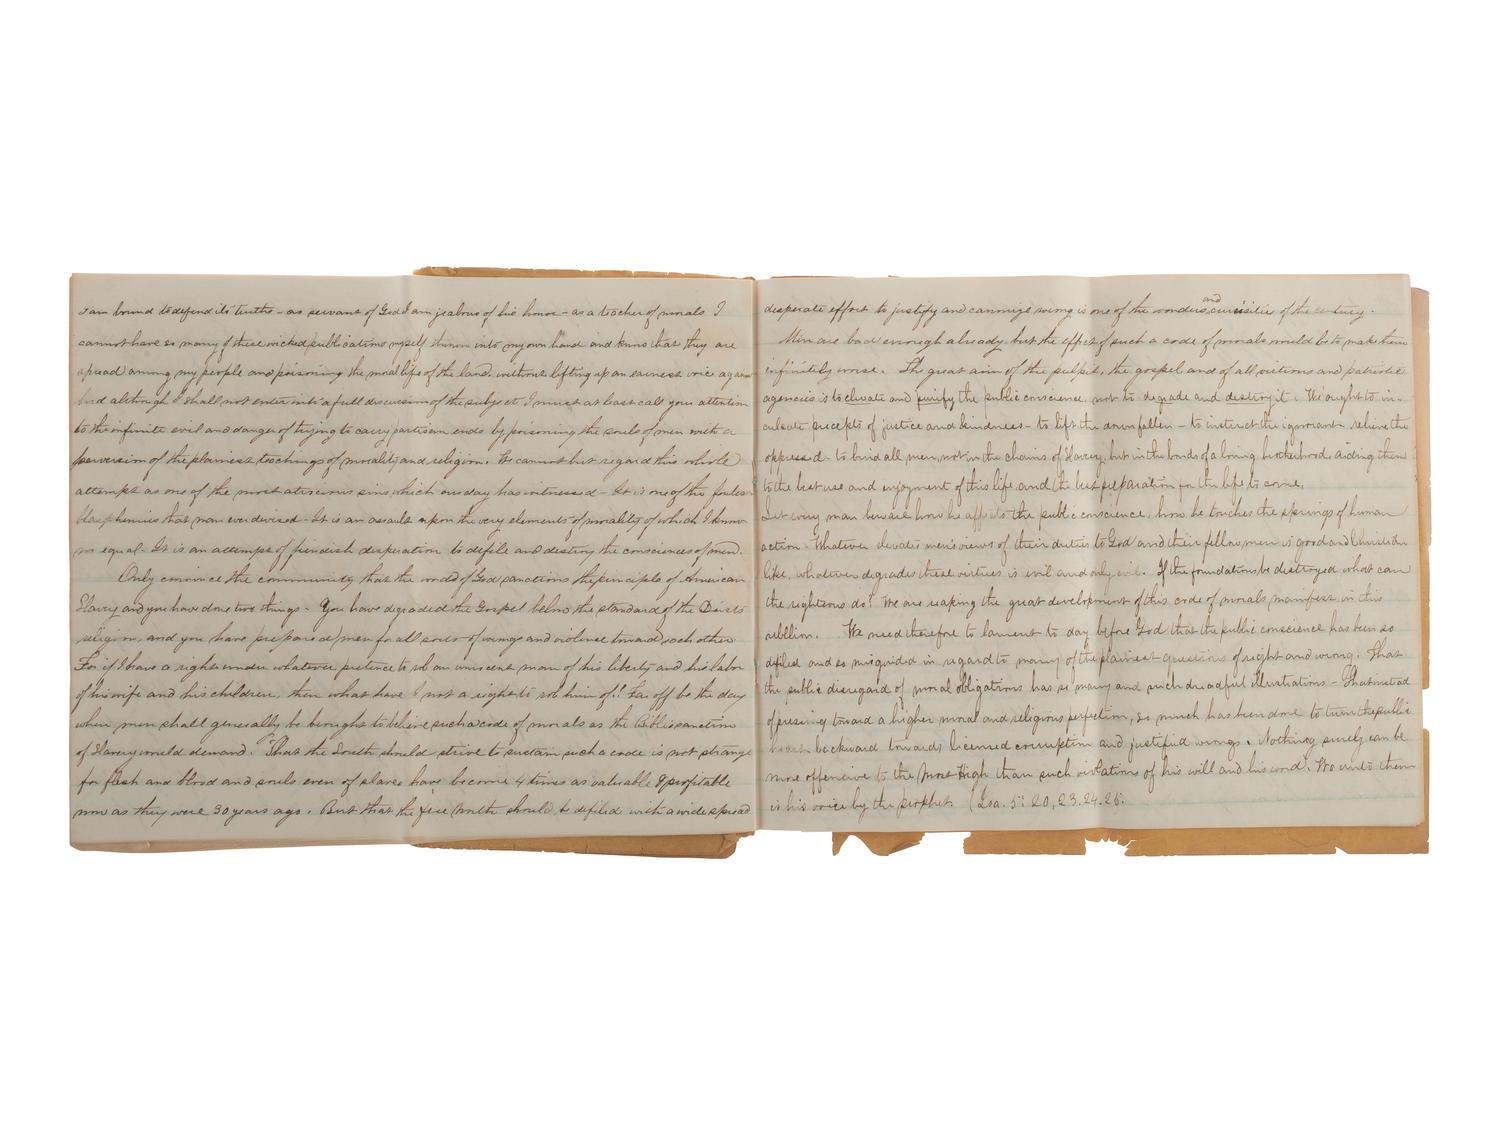 I am bound to defend its truths - as servant of God I am jealous of his honor - as a teacher of morals I
cannot have so many of these wicked publications myself thrown into my own hand and know that they are
spread among my people and poisoning the moral life of the land, without lifting up an earnest voice against
And although I shall not enter into a full discussion of the subject I must at least call your attention
to the infinite evil and danger of trying to carry partisan ends by poisoning the souls of men with a
perversion of the plainest teachings of morality and religion. We cannot but regard this whole
attempt as one of the most atrocious sins which our day has witnessed - It is one of the foulest
blasphemies that man ever devised - It is an assault upon the very elements of morality of which I know
no equal - It is an attempt of fiendish desperation to defile and destroy the consciences of men.
Only convince the community that the word of God sanctions the principle of American
Slavery and you have done two things - You have degraded the Gospel below the standard of the Deists
religion, and you have prepared men for all sorts of wrongs and violence toward each other
For if I have a right under whatever pretence to rob an innocent man of his liberty and his labor
of his wife and his children, then what have I not a right to rob him of!! Far off be the day
when men shall generally be brought to believe such a code of morals as the Bible sanction
of Slavery would demand. That the South should strive to sustain such a code is not strange
for flesh and blood and souls even of slaves have become 4 times as valuable & profitable
now as they were 30 years ago. But that the free North should be defiled with a wide spread
desperate effort to justify and canonize wrong is one of the wonders and curiosities of the century.
Men are bad enough already, but the effect of such a code of morals would be to make them
infinitely worse. The great aim of the pulpit, the gospel and of all virtuous and patriotic
agencies is to elevate and purify the public conscience, not to degrade and destroy it. We ought to in-
culcate precepts of justice and kindness - to lift the down fallen - to instruct the ignorant - relieve the
oppressed - to bind all men, not in the chains of Slavery, but in the bonds of a loving brotherhood. aiding them
to the best use and enjoyment of this life, and the best preparation for the life to come.
Let every man beware how he affects the public conscience, how he touches the springs of human
action. Whatever elevates men's views of their duties to God and their fellow men is good and Christian
like, whatever degrades these virtues is evil and only evil. If the foundations be destroyed what can
the righteous do? We are reaping the great development of this code of morals manifest in this
rebellion. We need therefore to lament to day before God that the public conscience has been so
defiled and so misguided in regard to many of the plainest questions of right and wrong. That
the public disregard of moral obligations has so many and such dreadful illustrations - That instead
of pressing toward a higher moral and religious perfection, so much has been done to turn the public
heart backward towards licensed corruption and justified wrongs. Nothing surely can be
more offensive to the Most High than such violations of his will and his word. We unto them
is his voice by the prophets (Isa. 5: 20, 23. 24. 25.